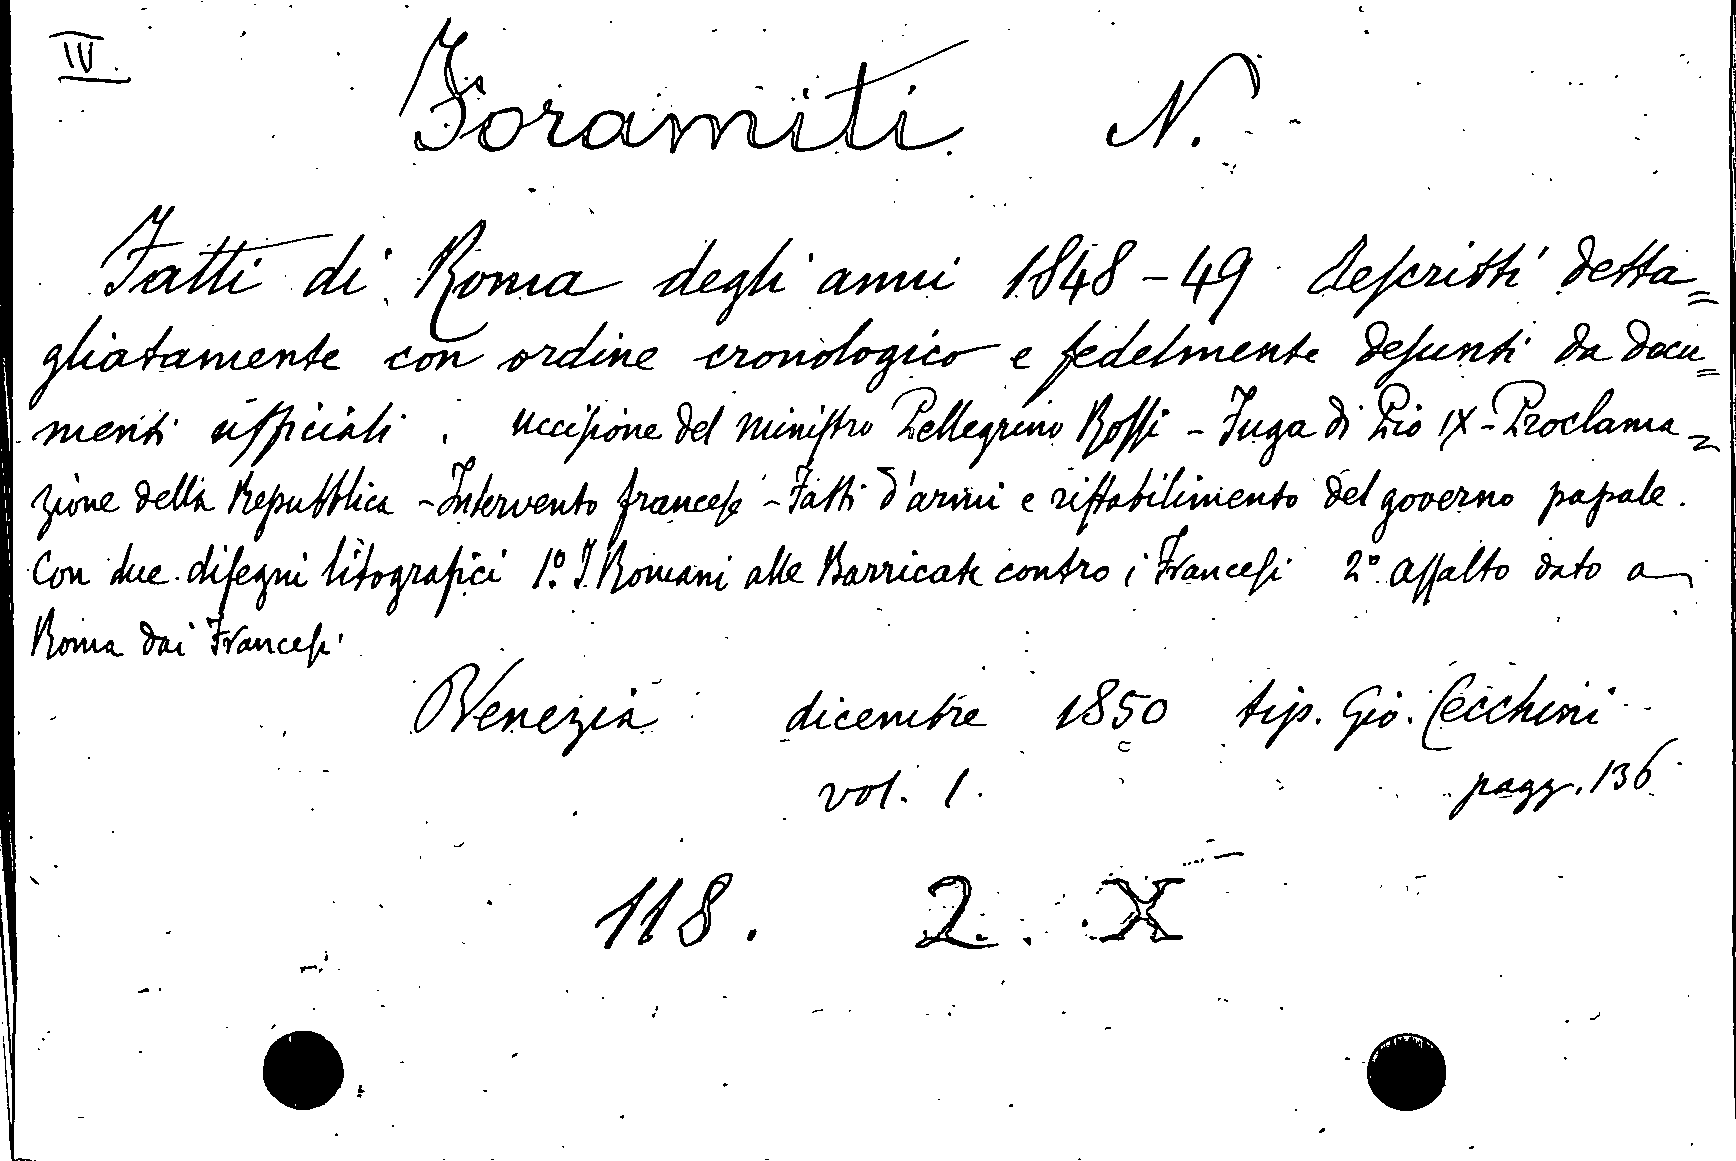 IV.
Foramiti N.
Fatti di Roma degli anni 1848-49 descritti detta=
gliatamente con ordine cronologico e fedelmente desunti da docu=
menti ufficiali. Uccisione del ministro Pellegrino Rossi - Fuga di Pio IX - Proclama=
zione della Repubblica - Intervento francese - Fatti d'armi e ristabilimento del governo papale.
Con due disegni litografici 1º. I Romani alle Barricate contro i Francesi 2º. assalto dato a
Roma dai Francesi
Venezia dicembre 1850 tip. Gio. Cecchini
vol. 1. pagg. 136
118. 2. X